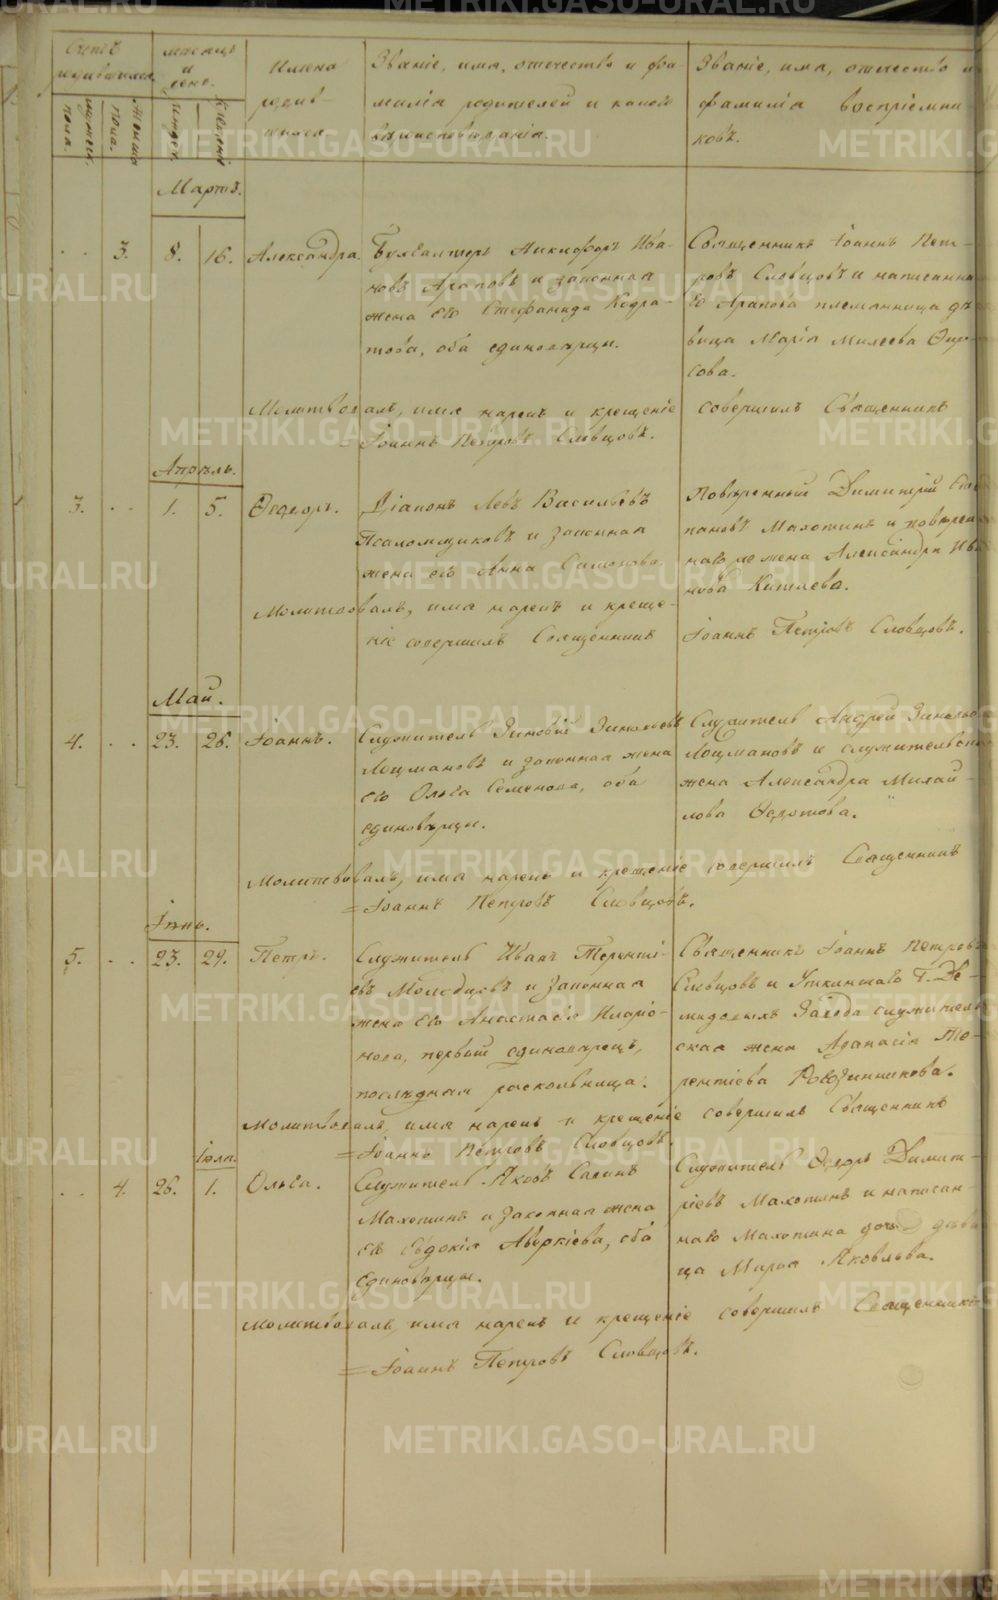 Счетъ родившихся.
мужеск. пола.
женска пола.
месяцъ и день.
рожден.
крещенiе
Имена родив-
шихся
Званiе, имя, отечество и фа-
милiя родителей и какого
вѣроисповѣданiя.
Званiе, имя, отечество и
фамилiя воспрiемни-
ковъ.
Мартъ.
3. 8. 16. Александра.
Бухгалтеръ Никифоръ Ива-
новъ Араповъ и законная
жена его Стефанида Кодра-
това, оба единоверцы.
Священникъ Iоаннъ Пет-
ровъ Словцовъ и написанна-
го Арапова племянница дѣ-
вица Марiя
Молитвовалъ, имя нарекъ и крещенiе совершилъ Священникъ
= Iоаннъ Петровъ Словцовъ.
Апрѣль.
3. 1. 5. Ѳедоръ.
Дiаконъ Левъ Васильевъ
Псаломщиковъ и законная
жена его Анна Симонова.
Повѣренный Димитрiй Сте-
пановъ Махотинъ и повѣрен-
наго же жена Александра Ива-
нова Китаева.
Молитвовалъ, имя нарекъ и креще-
нiе совершилъ Священникъ Iоаннъ Петровъ Словцовъ.
Май.
4. 23. 26. Iоаннъ.
Служитель Зиновiй Зиновьевъ
Лоцмановъ и законная жена
его Ольга Семенова, оба
единовѣрцы.
Служитель Андрей Зиновьевъ
Лоцмановъ и служительская
жена Александра Михай-
лова Ѳедотова.
Молитвовалъ, имя нарекъ и крещенiе совершилъ Священникъ
= Iоаннъ Петровъ Словцовъ.
Iюнь.
5. 23. 29. Петръ.
Служитель Иванъ Терентi-
евъ Молодцовъ и законная
жена его Анастасiя Иларiо-
нова, первый единоверецъ,
последняя раскольница.
Священникъ Iоаннъ Петровъ
Словцовъ и Уткинскаго Г. Де-
мидовыхъ Завода служитель-
ская жена Афанасiя Те-
рентiева
Молитвовалъ, имя нарекъ и крещенiе совершилъ Священникъ
= Iоаннъ Петровъ Словцовъ.
Iюля.
4. 26. 1. Ольга.
Служитель Яковъ Савинъ
Махотинъ и законная жена
его Евдокiя Аверкiева, оба
единовѣрцы.
Служитель Ѳедоръ Димит-
рiевъ Махотинъ и написан-
наго Махотина дочь дѣви-
ца Марiя Яковлева.
Молитвовалъ, имя нарекъ и крещенiе совершилъ Священникъ
= Iоаннъ Петровъ Словцовъ.
METRIKI.GASO-URAL.RU